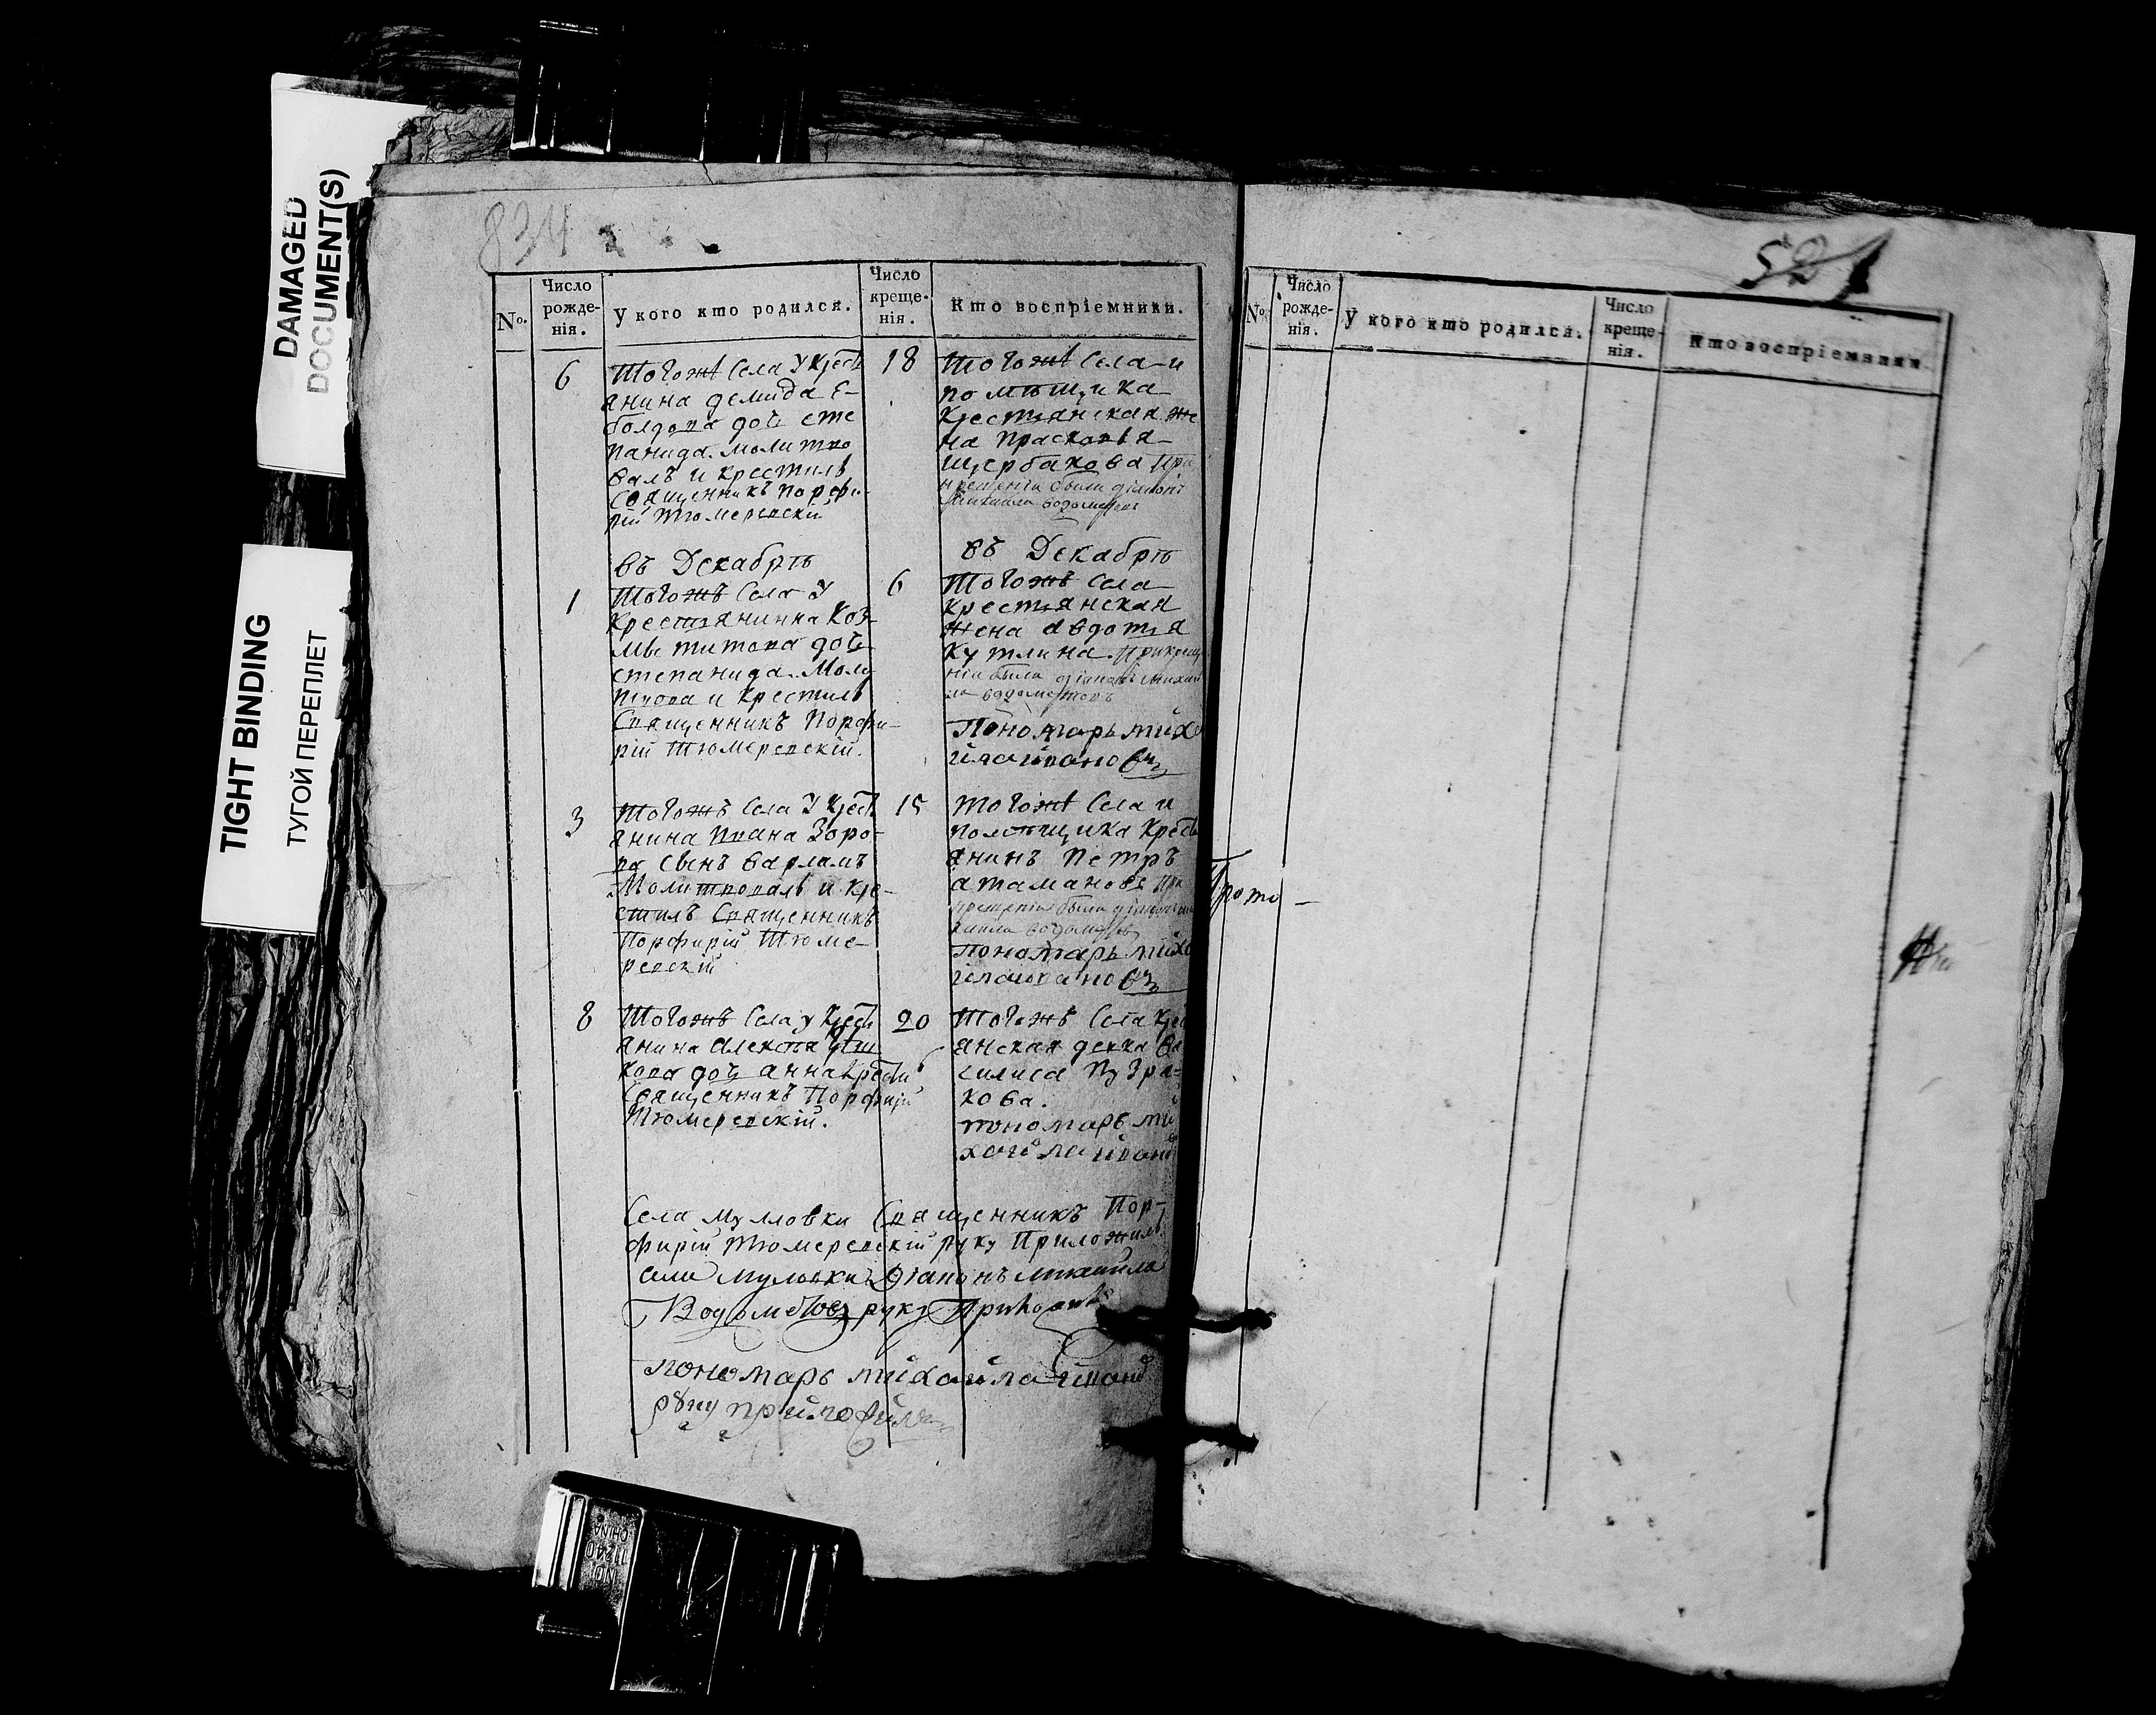 DAMAGED
DOCUMENT(S)
TIGHT BINDING
ТУГОЙ ПЕРЕПЛЕТ
834
№.
Число рожде-нія.
У кого кто родился.
Число креще-нія.
Кто воспріемники.
6
Тогожъ Села У Кресть
янина демида Е-
болдова дочь сте
панида. молитво
валъ и крестилъ
Священникъ порфи-
рій Тюмеревскій
18
Тогожъ Села и
помѣщика
Крестьянская же
на прасковья
Щербакова При
крещеніи былъ діаконъ
въ Декабрѣ
1
Тогожъ Села У
Крестьянинна Коз-
мы титова дочь
степанида. Моли
твова и Крестилъ
Священникъ Порфи-
рій Тюмеревскій.
въ Декабрѣ
6
Тогожъ Села
крестьянская
жена авдотья
Кутлина. При креще
ніи былъ діаконъ михаи
ла водометовъ
Пономарь миха
йла ивановъ
3
Тогожъ Села У Кресть
янина Ивана Заро-
ва сынъ варламъ
Молитвовалъ и кре-
стилъ Священникъ
Порфирій Тюме-
ревскій
15
Тогожъ Села и
помѣщика Кресть
янинъ Петръ
атамановъ при
крещеніи былъ діаконъ ми
хаила водометовъ
Пономарь миха
йла ивановъ
8
Тогожъ Села у Кресть
янина алексѣя
кова дочь анна Крести
Священникъ Порфирій
Тюмеревскій.
20
Тогожъ Села Крес
янская девка ва
силиса Пузра-
кова.
пономарь ми
хайла иванов
Села Мулловки Священникъ Пор-
фирій Тюмеревскій руку Приложилъ.
села Муловки Діаконъ михайла
Водометовъ руку Приложилъ
пономарь михайла иванов
руку приложилъ
521
№.
Число рожде-нія.
У кого кто родился.
Число креще-нія.
Кто воспріемники.
Прото-
INDI
11240
CHINA